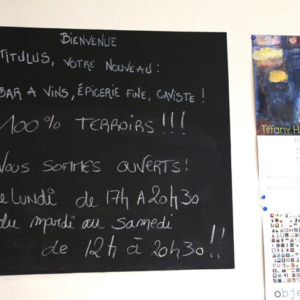 BIENVENUE
TITULUS, VOTRE NOUVEAU :
BAR A VINS, ÉPICERIE FINE, CAVISTE !
100% TERROIRS !!!
NOUS SOMMES OUVERTS !
Le Lundi de 17h A 20h30
du mardi au samedi
de 12h à 20h30 !!
Tiffany H
obje